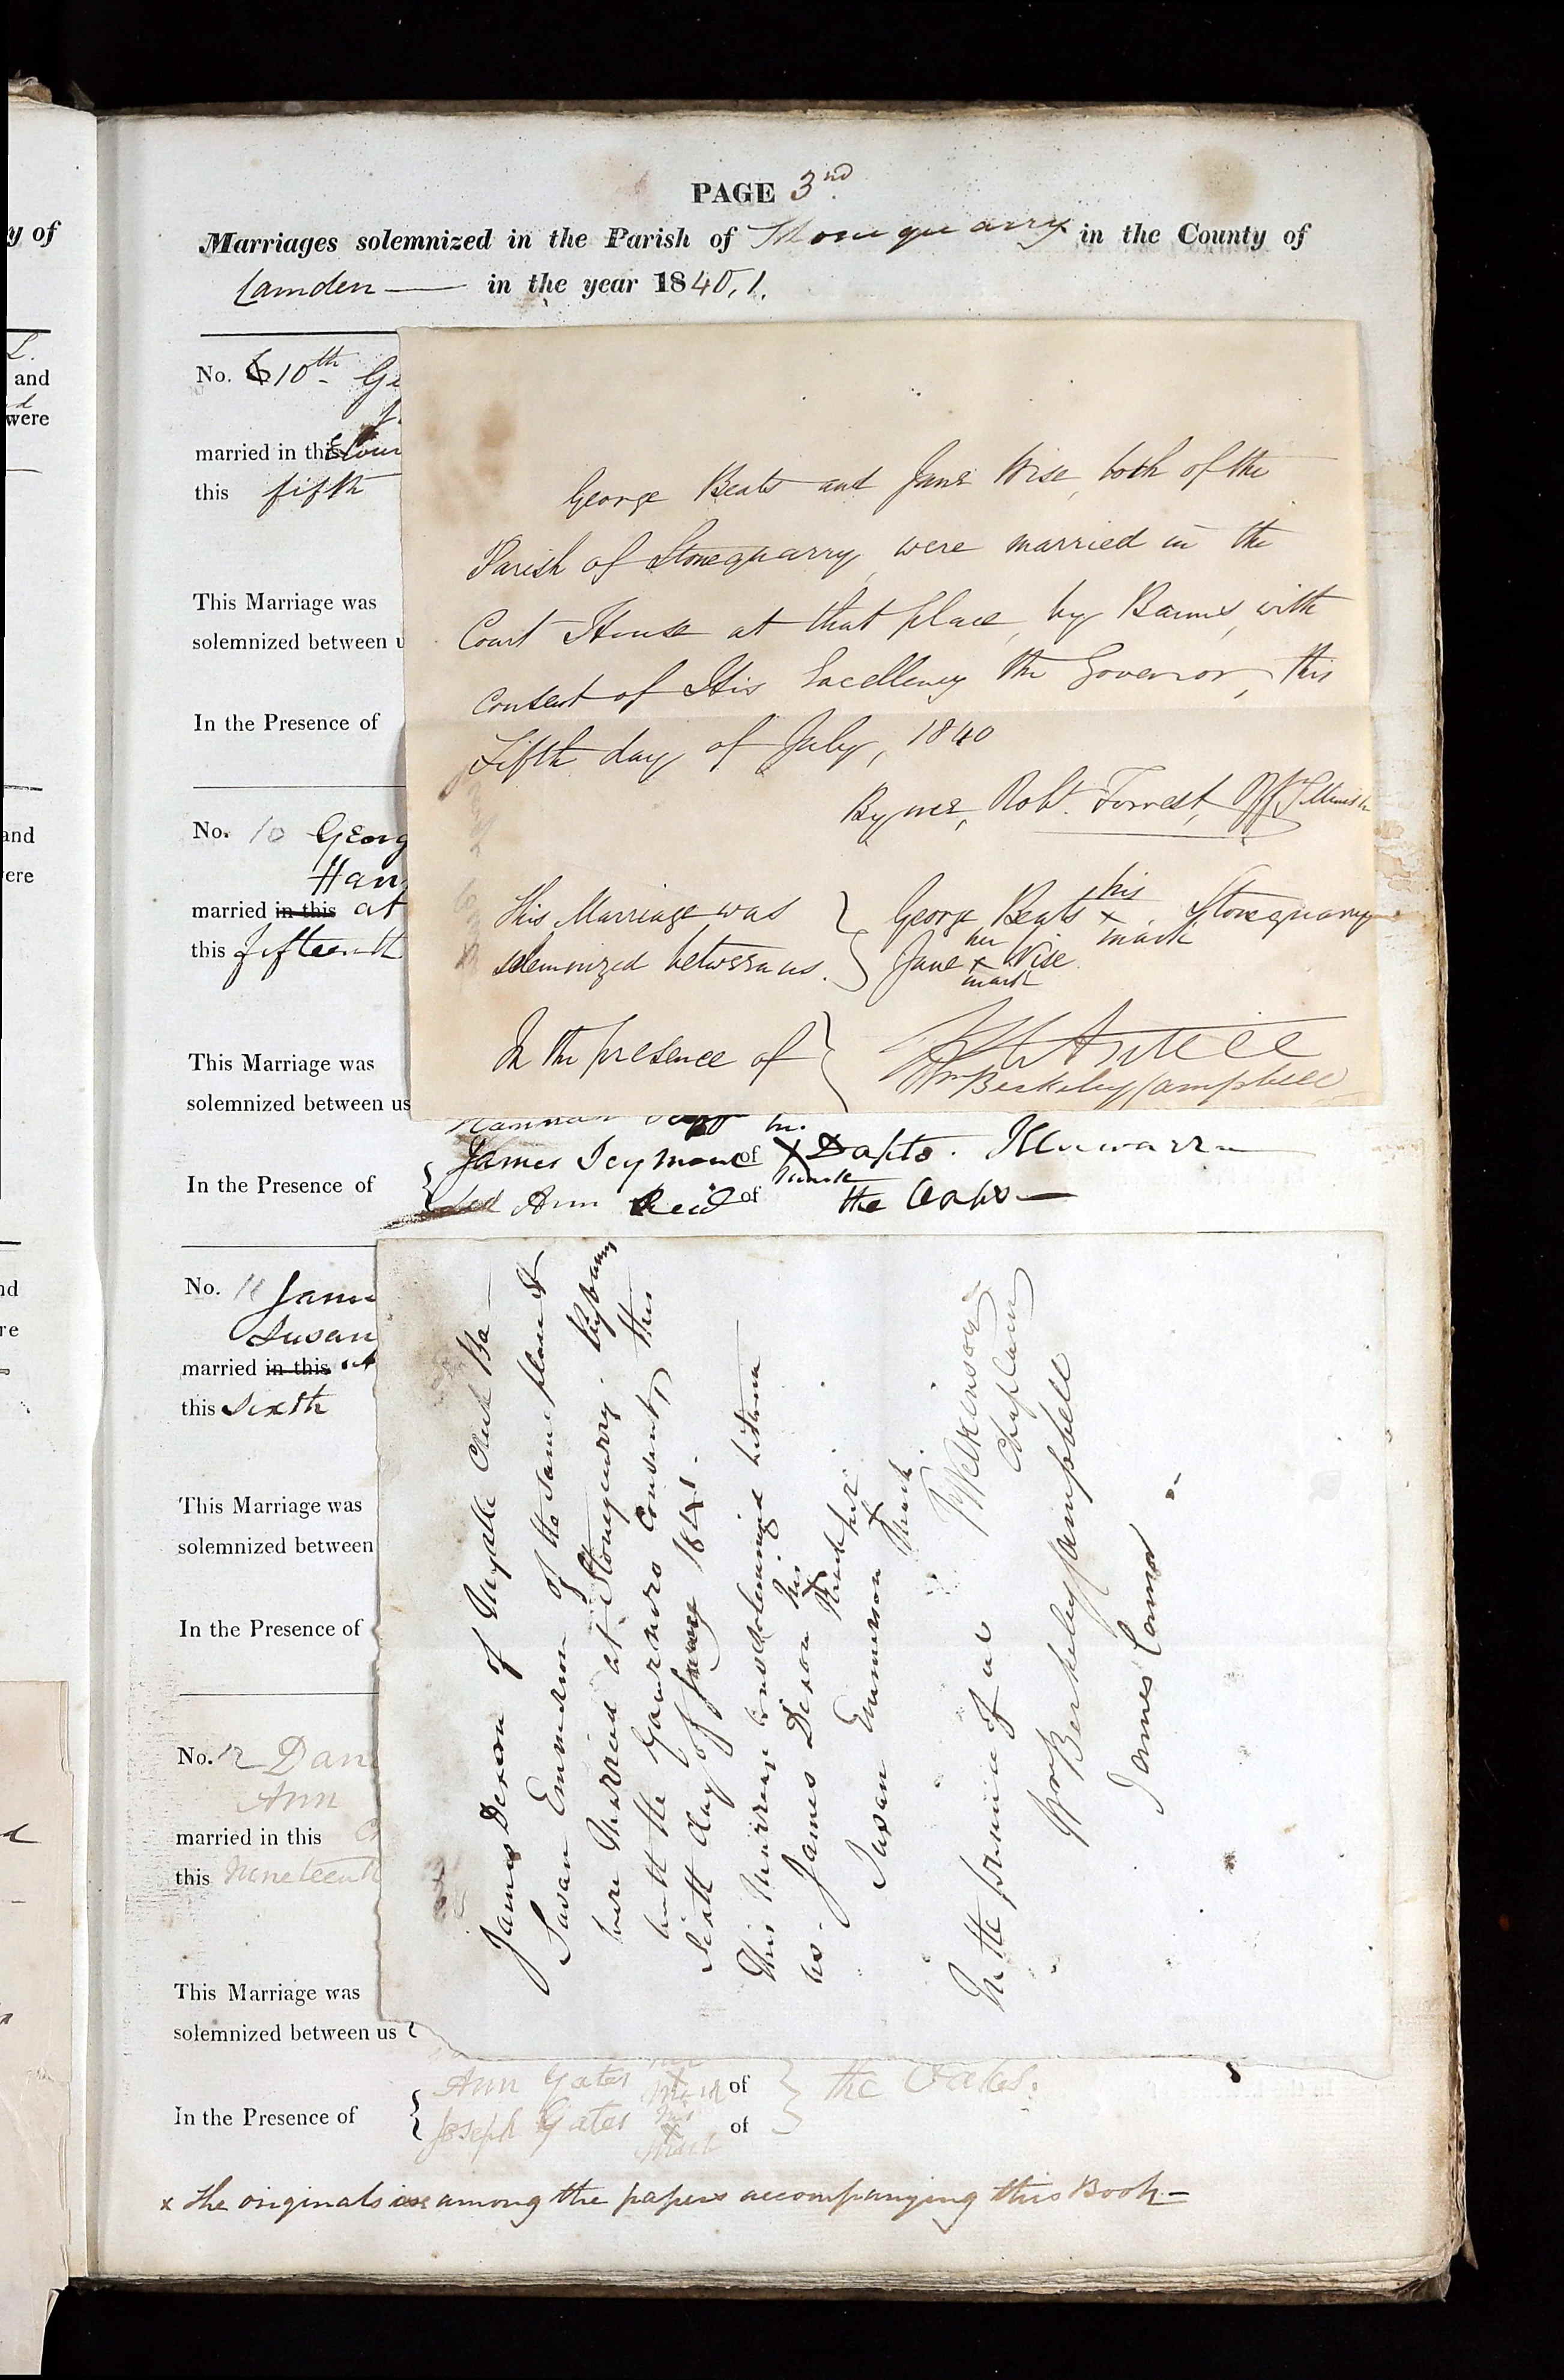 y of
and
were
and
ere
PAGE 3nd
Marriages solemnized in the Parish of Stonequarry in the County of
Camden — in the year 1840,1.
No. 10th Ge
married in this Cour
this fifth
This Marriage was
solemnized between u
In the Presence of
George Beats and Jane Wise, both of the
Parish of Stonequarry, were married in the
Court House at that place, by Banns, with
consent of His Excellency the Governor, this
Fifth day of July, 1840
By me, Robt. Forrest, Off
This Marriage was } George Beats his x mark. Stonequarry
solemnized between us. } Jane her x mark Wise
In the presence of }
Wm Berkeley Campbell
No. 10 Georg
Han
married in this at
this fifteenth
This Marriage was
solemnized between us
Hannah
In the Presence of { James Seymour of X Dapto. Illawarra
mark
Ann Reid of the Oaks —
No. 11 Jam
Susan
married in this at
this Sixth
This Marriage was
solemnized between
In the Presence of
James Dexon of Myrtle Creek Ba
Susan Emmerson of the same place &
were Married at Stonequarry by banns
with the Governors Consent, this
Sixth day of 1841.
This Marriage was Solemnized between
us. James Dexon his x Mark
Susan Emmerson her x Mark
Wilkinson
Chaplain
In the presence of us
Wm Berkeley Campbell
James Connor
No. 12 Dan
Ann
married in this
this Nineteenth
This Marriage was
solemnized between us
In the Presence of { Ann Yates x mark of } the Oakes.
Joseph Yates his x Mark of
x the originals are among the papers accompanying this Book —